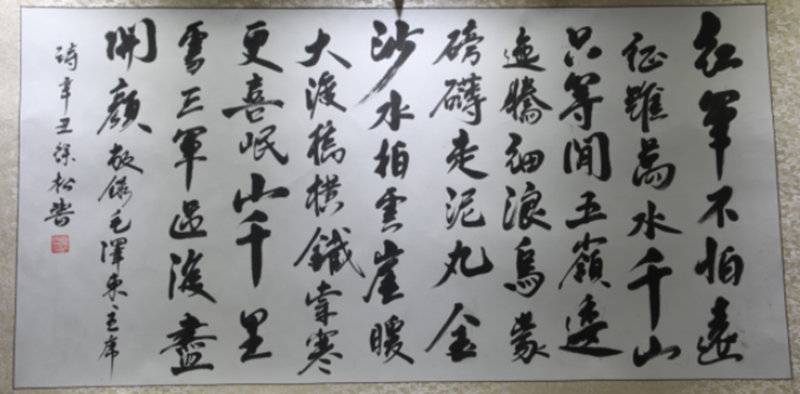 紅軍不怕遠
征難萬水千山
只等閒五嶺逶
迤騰細浪烏蒙
磅礴走泥丸金
沙水拍雲崖暖
大渡橋橫鐵索寒
更喜岷山千里
雪三軍過後盡
開顏敬錄毛澤東主席
詩辛丑徐松